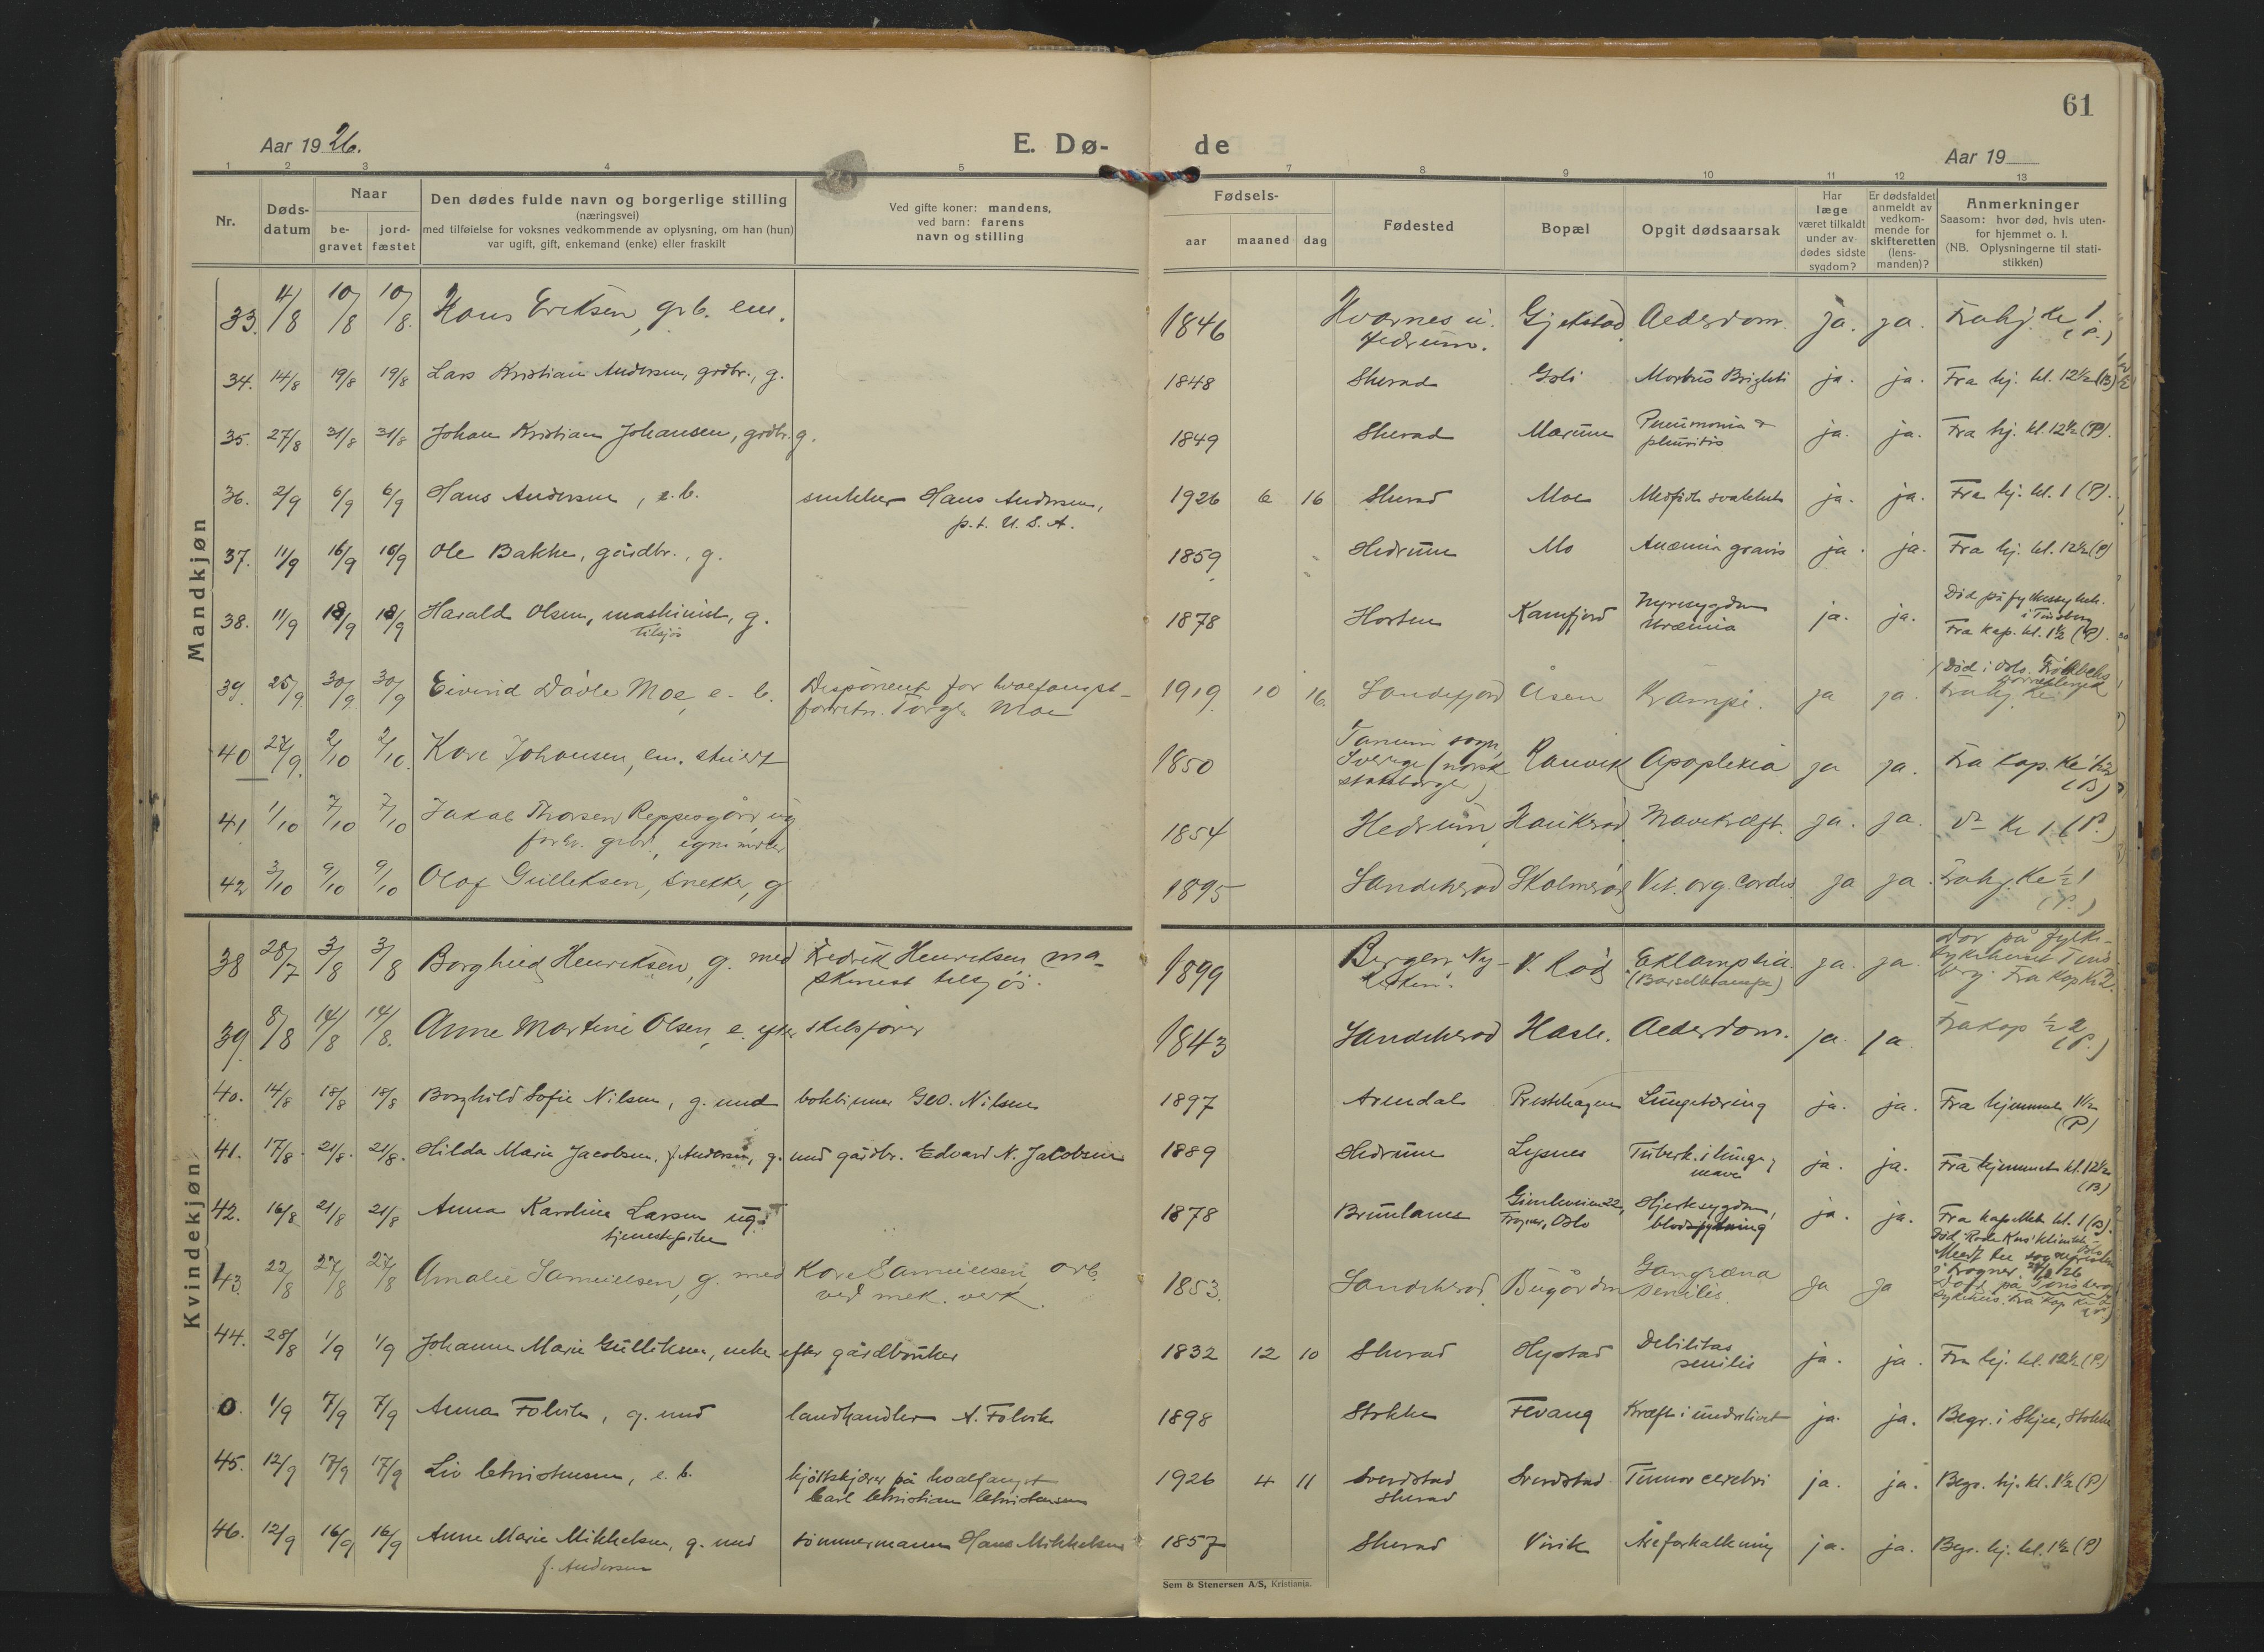 61
Aar 1926.
E. Dø-
de
Aar 19
1 2 3 4 5 6 7 8 9 10 11 12 13
Nr.
Døds-
datum
Naar
be-
gravet
jord-
fæstet
Den dødes fulde navn og borgerlige stilling
(næringsvei)
med tilføielse for voksnes vedkommende av oplysning, om han (hun)
var ugift, gift, enkemand (enke) eller fraskilt
Ved gifte koner: mandens,
ved barn: farens
navn og stilling
Fødsels-
aar maaned dag
Fødested
Bopæl
Opgit dødsaarsak
Har
læge
været tilkaldt
under av-
dødes sidste
sygdom?
Er dødsfaldet
anmeldt av
vedkom-
mende for
skifteretten
(lens-
manden)?
Anmerkninger
Saasom: hvor død, hvis uten-
for hjemmet o. l.
(NB. Oplysningerne til stati-
stikken)
Mandkjøn
33. 4/8 10/8 10/8. Hans Eriksen, grb. em. 1846 Kvarnes i Gjekstad Alderdom. ja. ja. Fra hj. Kl 1
Hedrum. (P.)
34. 14/8 19/8 19/8 Lars Kristian Andersen, grdbr., g. 1848 Sherad Goli Morbus Brighti ja. ja. Fra hj. kl. 12½ (B)
35. 27/8 31/8 31/8 Johan Kristian Johansen, grdbr. g. 1849 Sherad Marum Pneumonia &
pleuritis ja. ja. Fra hj. kl. 12½ (P).
36. 2/9 6/9 6/9 Hans Andersen, e.b. snekker Hans Andersen,
p.t. U.S.A. 1926 6 16 Sherad Moe Medfødt svakhet ja. ja. Fra hj. kl. 1 (P).
37. 11/9 16/9 16/9 Ole Bakke, gårdbr., g. 1859 Hedrum Mo Anæmia gravis ja. ja. Fra hj. kl. 12½ (P)
38. 11/9 18/9 18/9 Harald Olsen, maskinist, g.
tilsjøs 1878 Horten Kamfjord Nyresygdom
Uræmia ja. ja. Død på fylkessykeh.
i Tønsberg
Fra kap. kl. 1½ (P).
39. 25/9 30/9 30/9 Eivind Dåvle Moe, e. b. Disponent for hvalfangst-
forretn. Torger Moe 1919 10 16. Sandefjord Åsen Krampe. ja ja. Død i Oslo.
Fra hj. Kl
40 27/9. 2/10 2/10. Kare Johansen, em. stuert 1850 Tanum sogn,
Sverige (norsk
statsborger) Ranvik Apoplexia ja ja. Fra Kap. Kl ½2
(B)
41 1/10 7/10 7/10 Jakob Thorsen Reppesgård ug
forh. grbr., egne midler 1854 Hedrum Haukerød Mavekræft. ja. ja. do Kl 1 (P.)
42 3/10 9/10 9/10 Olaf Gulleksen, Snekker, g 1895 Sandeherad Skolmerød Vit. org. Cordis ja ja. Fra hj. Kl ½1
(P.)
Kvindekjøn
38 28/7 3/8 3/8 Borghild Henriksen, g. med Fredrik Henriksen ma-
skinist tilsjøs. 1899 Bergen, Ny-
kirken. V. Rød Eklampsia.
(Barselkrampe) ja. ja. Død på fylkes-
sykehuset Tøns-
berg. Fra Kap Kl 2.
39 8/8 14/8 14/8. Anne Martine Olsen, e. efter skibsfører 1843 Sandeherad Hasle. Alderdom. ja ja Fra Kap ½2
(P.)
40. 14/8 18/8 18/8 Borghild Sofie Nilsen, g. med bokbinner Geo. Nilsen 1897 Arendal Prestehagen Lungetæring ja. ja. Fra hjemmet 1½
(P)
41. 17/8. 21/8. 21/8. Hilda Marie Jacobsen, f. Andersen, g. med gårdbr. Edvard N. Jacobsen 1889 Hedrum Lysnes Tuberk. i lunge,
mave ja. ja. Fra hjemmet kl. 12½
(B)
42. 16/8 21/8 21/8 Anna Karoline Larsen ug.
tjenestepike 1878 Brunlanes Gimleveien 22,
Frogner, Oslo Hjertesygdom,
blodspytning ja. ja. Fra kapellet kl. 1 (B).
Død Røde Kors' klinikk Oslo
43. 22/8 27/8 27/8 Amalie Samuelsen, g. med Kare Samuelsen, arb.
ved mek. verk. 1853. Sandeherad Bugården Gangræna
senilis ja ja Død på Tønsberg
sykehus. Fra Kap Kl
44. 28/8 1/9 1/9 Johanne Marie Gulliksen, enke efter gårdbruker 1832 12 10 Sherad Hystad Debilitas
senilis ja. ja. Fra hj. kl. 12½ (P)
0. 1/9 7/9 7/9 Anna Folvik, g. med landhandler A. Folvik 1898 Stokke Fevang Kræft i underlivet ja. ja. Begr. i Skjee, Stokke
45. 12/9 17/9 17/9 Liv Christensen, e. b. kjøttskjærer på hvalfangst
Carl Christian Christensen 1926 4 11 Svendstad
Sherad Svendstad Tumor cerebri ja. ja. Begr. hj. kl. 1½ (P)
46. 12/9 16/9 16/9 Anne Marie Mikkelsen, g. med tømmermann Hans Mikkelsen
f. Andersen 1857 Sherad Virik Åreforkalkning ja. ja. Begr. hj. kl. 1½ (P)
Sem & Stenersen A/S, Kristiania.